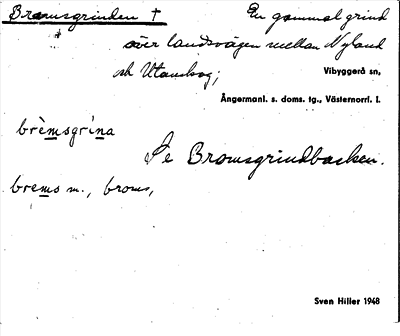 Bromsgrinden † En gammal grind
över landsvägen mellan Nyland
och Utanskog;
Vibyggerå sn,
Ångermanl. s. doms. tg., Västernorrl. l.
brèmsgrìna
Se Bromsgrindbacken.
brems m., broms,
Sven Hiller 1948